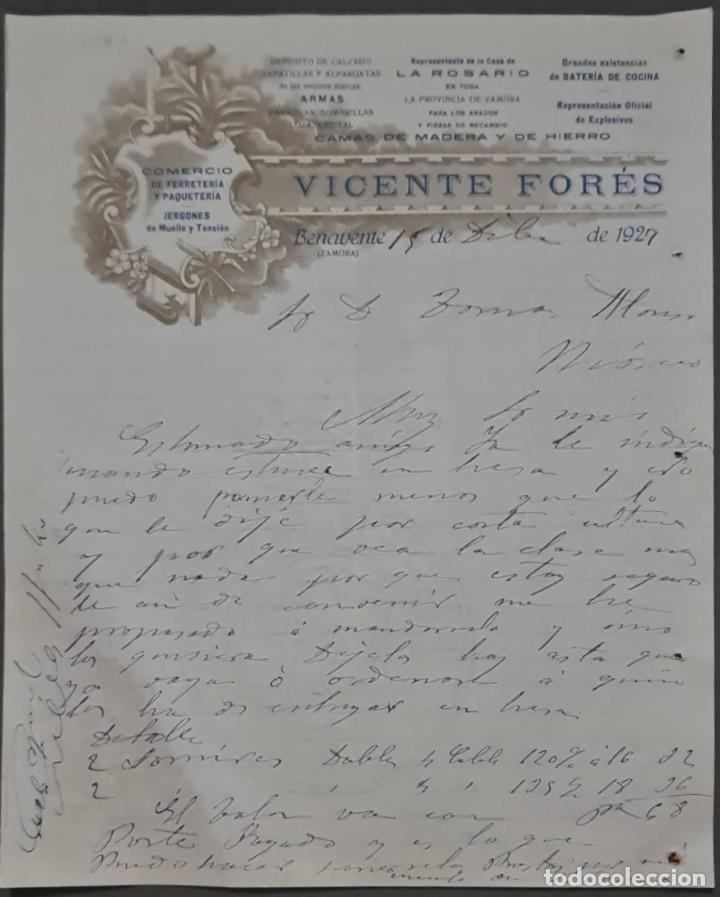 DEPÓSITO DE CALZADO
ZAPATILLAS Y ALPARGATAS
de las mejores marcas
ARMAS
PARAGUAS, SOMBRILLAS
LOZA, CRISTAL
Representante de la Casa de
LA ROSARIO
EN TODA
LA PROVINCIA DE ZAMORA
PARA LOS ARADOS
Y PIEZAS DE RECAMBIO
Grandes existencias
de BATERÍA DE COCINA
Representación Oficial
de Explosivos
CAMAS DE MADERA Y DE HIERRO
COMERCIO
DE FERRETERÍA
Y PAQUETERÍA
JERGONES
de Muelle y Tensión
VICENTE FORÉS
Benavente 15 de Dibre de 1927
(ZAMORA)
Sr D Tomas Alonso
Muy Sr mio
Estimado amigo Ya le indique
cuando estuve en y no
puedo ponerle menos que lo
que le dije por corta
y por que vea la clase mas
que nada por que estoy seguro
le an de convenir me he
propuesto á mandarsela y sino
los quisiera Dejelos hay asta que
yo vaya ó ordenase á quien
los ha de entregar en
Detalle
2 Somieres Doble 4 120 % á 16 32
2 " " 4 " 135 % 18 36
El valor va con pta 68
Porte Pagado y es lo que
Puedo hacer
todocoleccion
todocoleccion.net